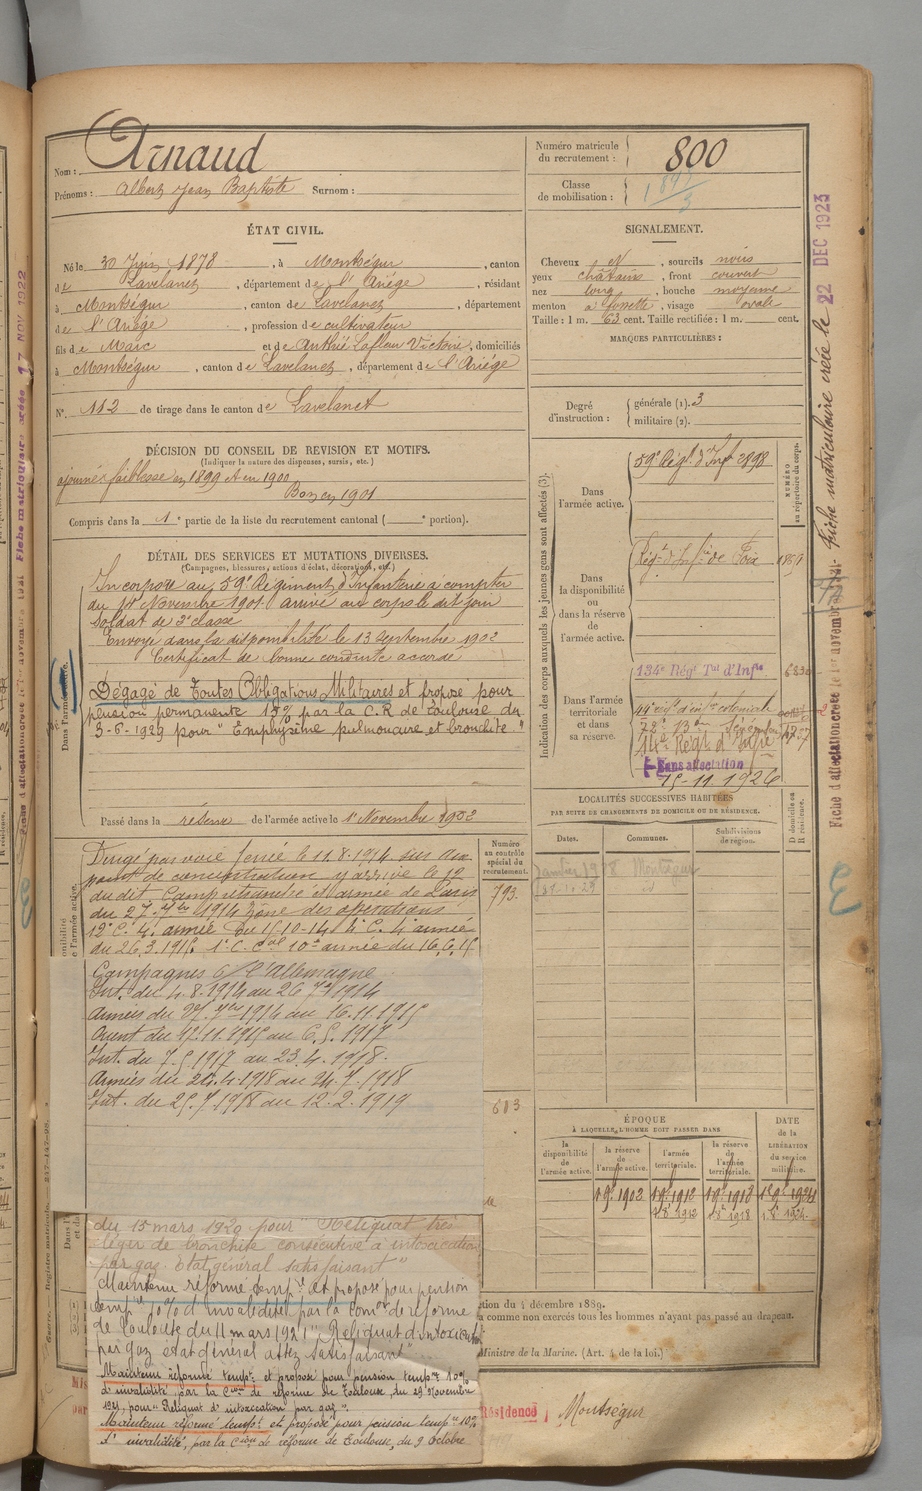 Nom : Arnaud
Prénoms : Albert Jean Baptiste Surnom :
Numéro matricule du recrutement : 800
Classe de mobilisation :
ÉTAT CIVIL.
Né le 30 Juin 1878, à Montségur, canton
de Lavelanet, département de l'Ariège, résidant
à Montségur, canton de Lavelanet, département
de l'Ariège, profession de cultivateur
fils de Marc et de Authié Lafleur Victoire, domiciliés
à Montségur, canton de Lavelanet, département de l'Ariège
N° 112 de tirage dans le canton de Lavelanet
SIGNALEMENT.
Cheveux N, sourcils noirs
yeux châtains, front couvert
nez long, bouche moyenne
menton à fossette, visage ovale
Taille : 1 m. 63 cent. Taille rectifiée : 1 m. cent.
MARQUES PARTICULIÈRES :
Degré d'instruction : générale (1). 3
militaire (2).
DÉCISION DU CONSEIL DE REVISION ET MOTIFS.
(Indiquer la nature des dispenses, sursis, etc.)
ajourné faiblesse en 1899 et en 1900
Bon en 1901
Compris dans la 1e partie de la liste du recrutement cantonal ( e portion).
DÉTAIL DES SERVICES ET MUTATIONS DIVERSES.
(Campagnes, blessures, actions d'éclat, décorations, etc.)
Incorporé au 59e Régiment d'Infanterie à compter
du 14 Novembre 1901 arrivé au corps le dit jour
Soldat de 2e classe
Envoyé dans la disponibilité le 13 Septembre 1902
Certificat de bonne conduite accordé
Dégagé de Toutes Obligations Militaires et proposé pour
pension permanente par la C.R de Toulouse du
3-6-1929 pour "Emphysème pulmonaire et bronchite."
Passé dans la réserve de l'armée active le 1er Novembre 1902
Indication des corps auxquels les jeunes gens sont affectés (3).
NUMÉRO au répertoire du corps.
Dans l'armée active.
59e Régt d'Inf 2898
Dans la disponibilité ou dans la réserve de l'armée active.
Régt d'Infie de Foix
Dans l'armée territoriale et dans sa réserve.
134e Régt Tal d'Infie
44e régt d'infie coloniale
14e Régt d'Infie
Sans affectation
15-11-1926
LOCALITÉS SUCCESSIVES HABITÉES
PAR SUITE DE CHANGEMENTS DE DOMICILE OU DE RÉSIDENCE.
Dates. Communes. Subdivisions de région. D domicile ou R résidence.
Montségur
Numéro au contrôle spécial du recrutement.
793.
Dirigé par voie ferrée le 11.8.1914 sur un
point de concentration y arrive le 12
du dit Camp retranché et armée de Paris
du 27. 7bre 1914 zône des opérations
12e C. 4e armée du 15-10-14 4e C. 4e armée
du 26.3.1915. 1e C. Cal 10e armée du 16.6.15
Campagnes c/ l'Allemagne
Int. du 4.8.1914 au 26 7bre 1914
Armées du 27. 7bre 1914 au 16.11.1915
Orient du 17.11.1915 au 6.5.1917
Int. du 7.5.1917 au 23.4.1918.
Armées du 24.4.1918 au 24.7.1918
Int. du 25.7.1918 au 12.2.1919
603
ÉPOQUE
À LAQUELLE L'HOMME DOIT PASSER DANS
la disponibilité de l'armée active.
la réserve de l'armée active.
l'armée territoriale.
la réserve de l'armée territoriale.
DATE de la LIBÉRATION du service militaire.
19e 1902 19e 1912 19e 1918 19e 1924
du 15 mars 1920 pour "Reliquat très
léger de bronchite consécutive à intoxication
par gaz. Etat général satisfaisant"
Maintenu réformé tempre et proposé pour pension
tempre 10% d'invalidité par la Comon de réforme
de Toulouse du 11 mars 1921 "Reliquat d'intoxication
par gaz état général assez satisfaisant"
Maintenu réformé tempre et proposé pour pension tempre 10%
d'invalidité par la Cion de réforme de Toulouse, du 29 Novembre
1921, pour "Reliquat d'intoxication par gaz".
Maintenu réformé tempre et proposé pour pension tempre 10%
d'invalidité, par la Cion de réforme de Toulouse, du 9 Octobre
ction du 4 décembre 1889.
a comme non exercés tous les hommes n'ayant pas passé au drapeau.
Ministre de la Marine. (Art. 4 de la loi.)
Résidence Montségur
fiche matriculaire créée le 22 DEC 1923
Fiche d'affectation créée le 1er novembre
Fiche matriculaire créée 17 NOV 1922